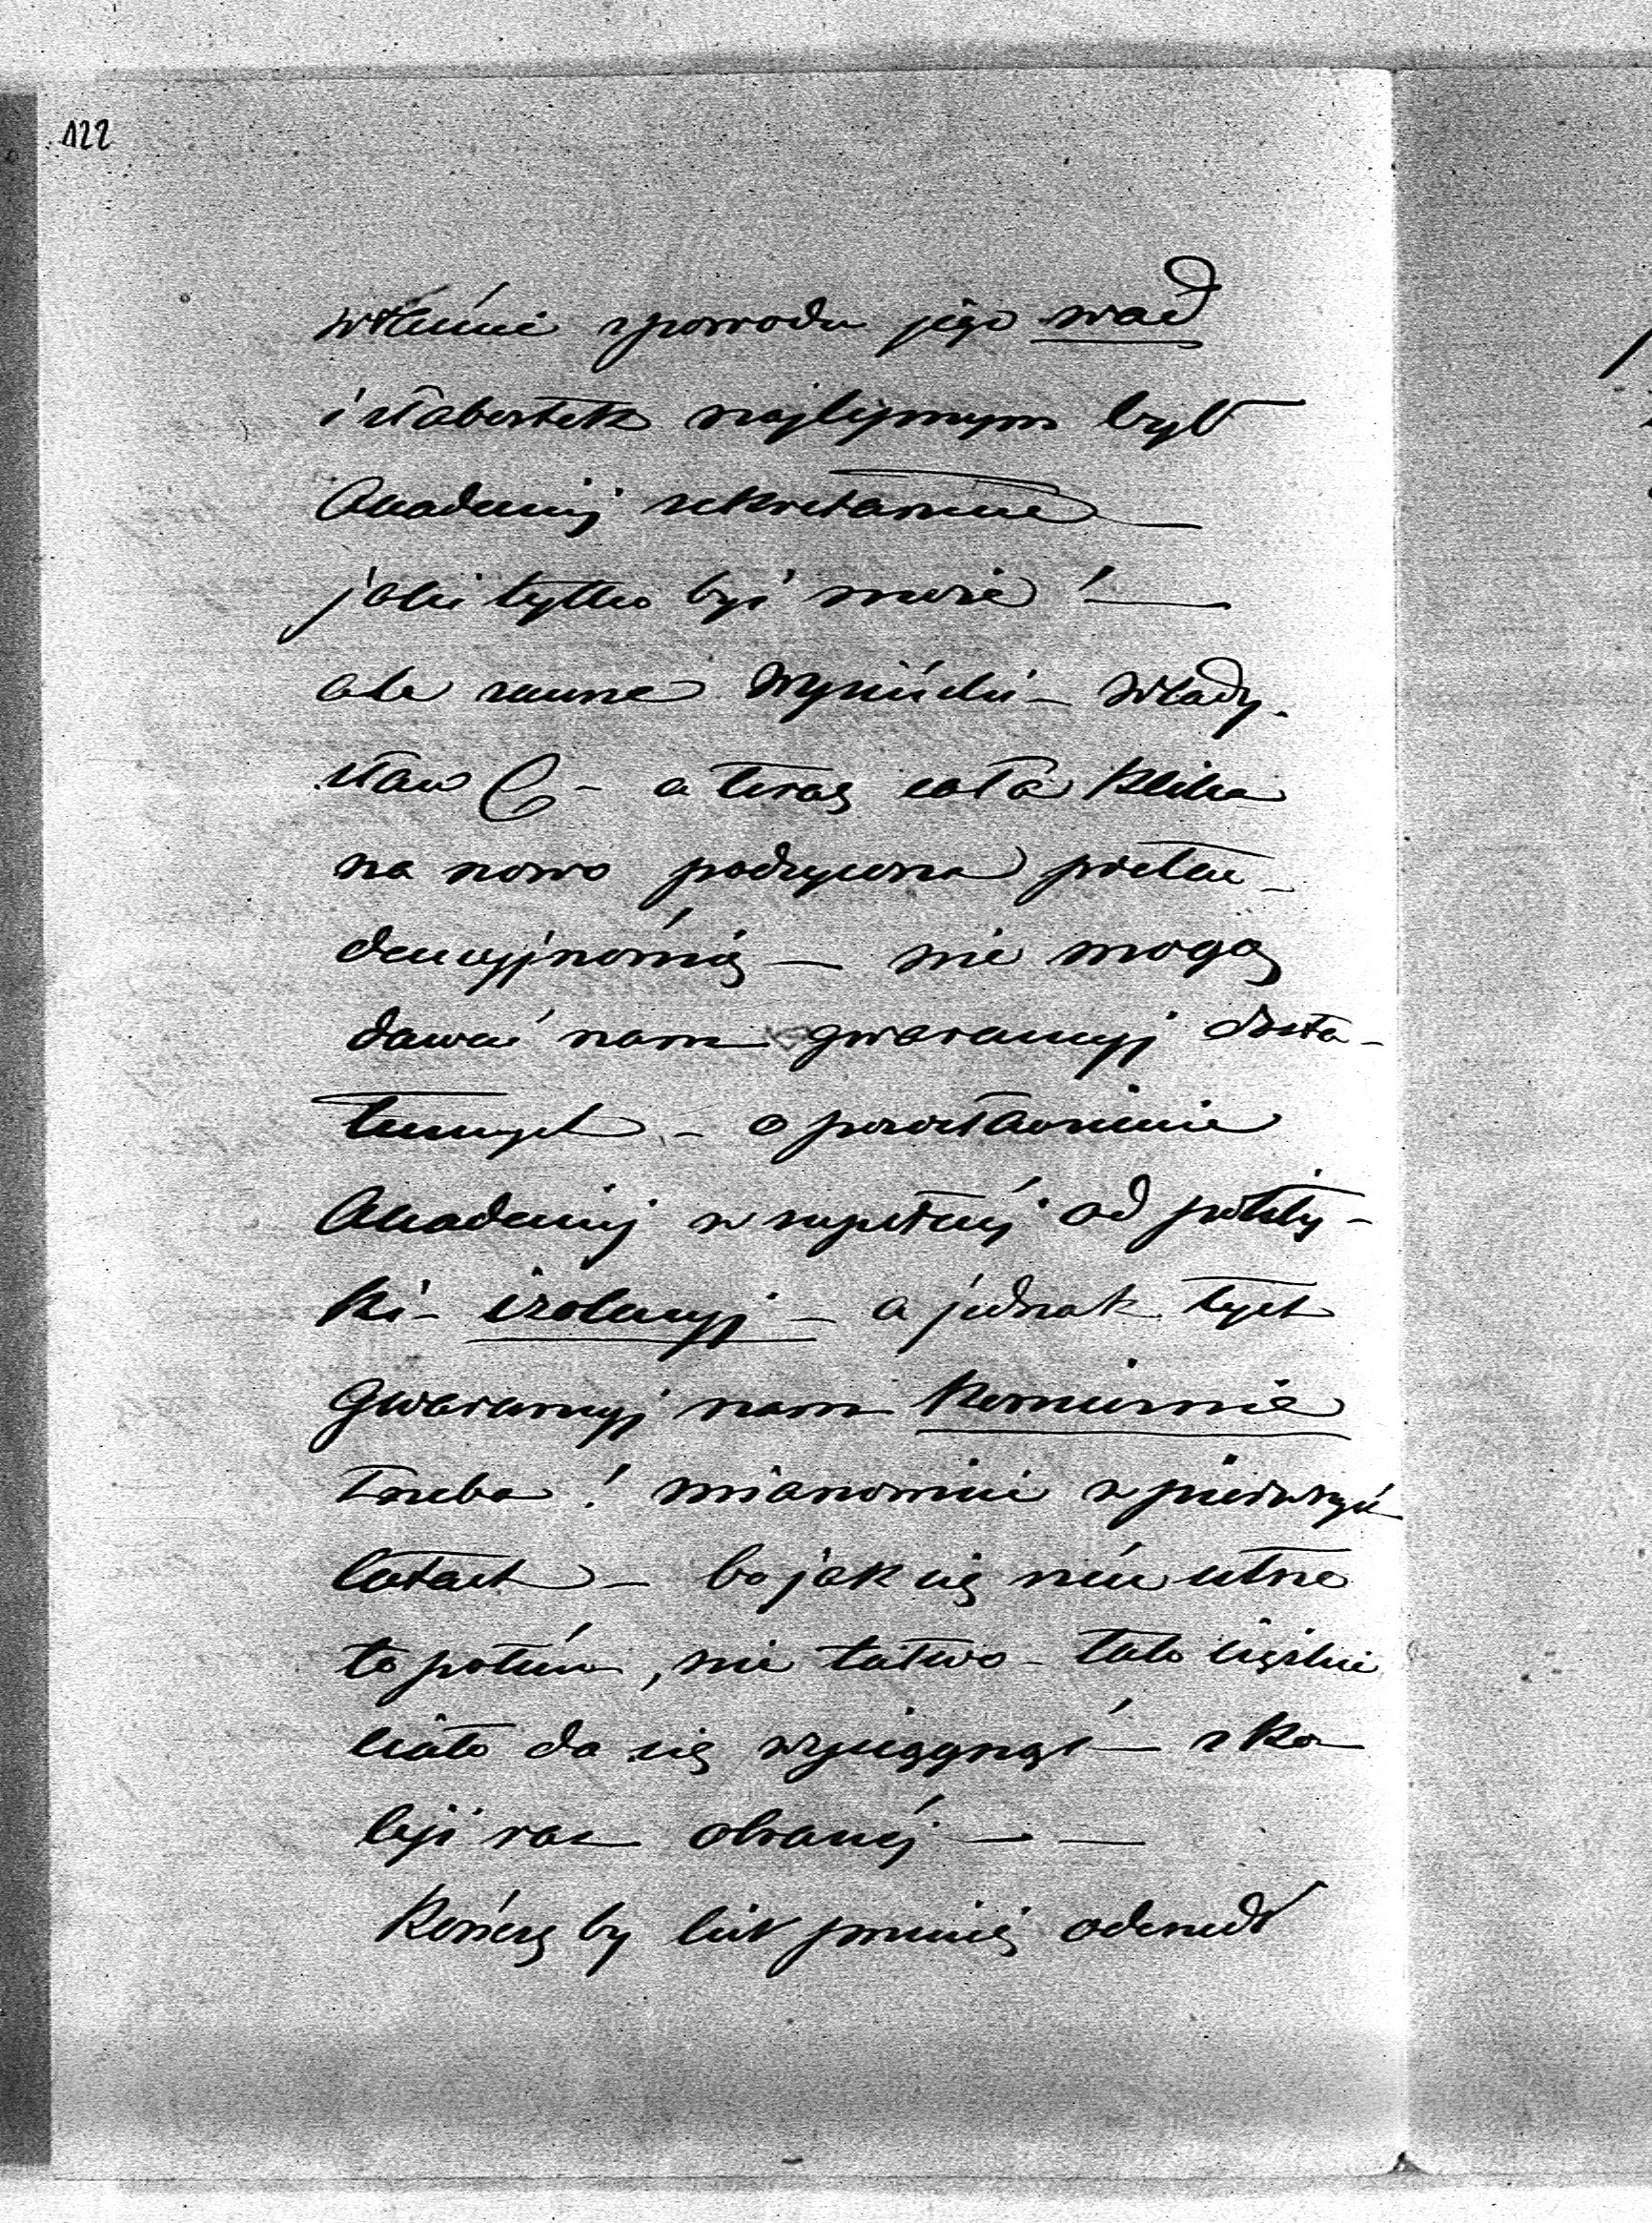 122
właśnie z powodu jego wad
i słabostek najlepszym był
Akademij sekretarzem
jaki tylko być może! —
ale zawsze wyniósł – Włady-
sław C – a teraz cała klika
na nowo podsycona preten-
dencyjnością — nie mogą
dawać nam gwarancyj dosta-
tecznych – o pozostawienie
Akademij w zupełnéj od polity-
ki – izolacyj – a jednak tych
Gwarancyj nam koniecznie
trzeba! mianowicie w pierwszych
latach – bo jak się nień utnie
to potém, nie łatwo – tak ciężkie
ciało da się wyciągnąć — z ko
leji raz obranéj — —
Kończę by list pomiędzy odszedł